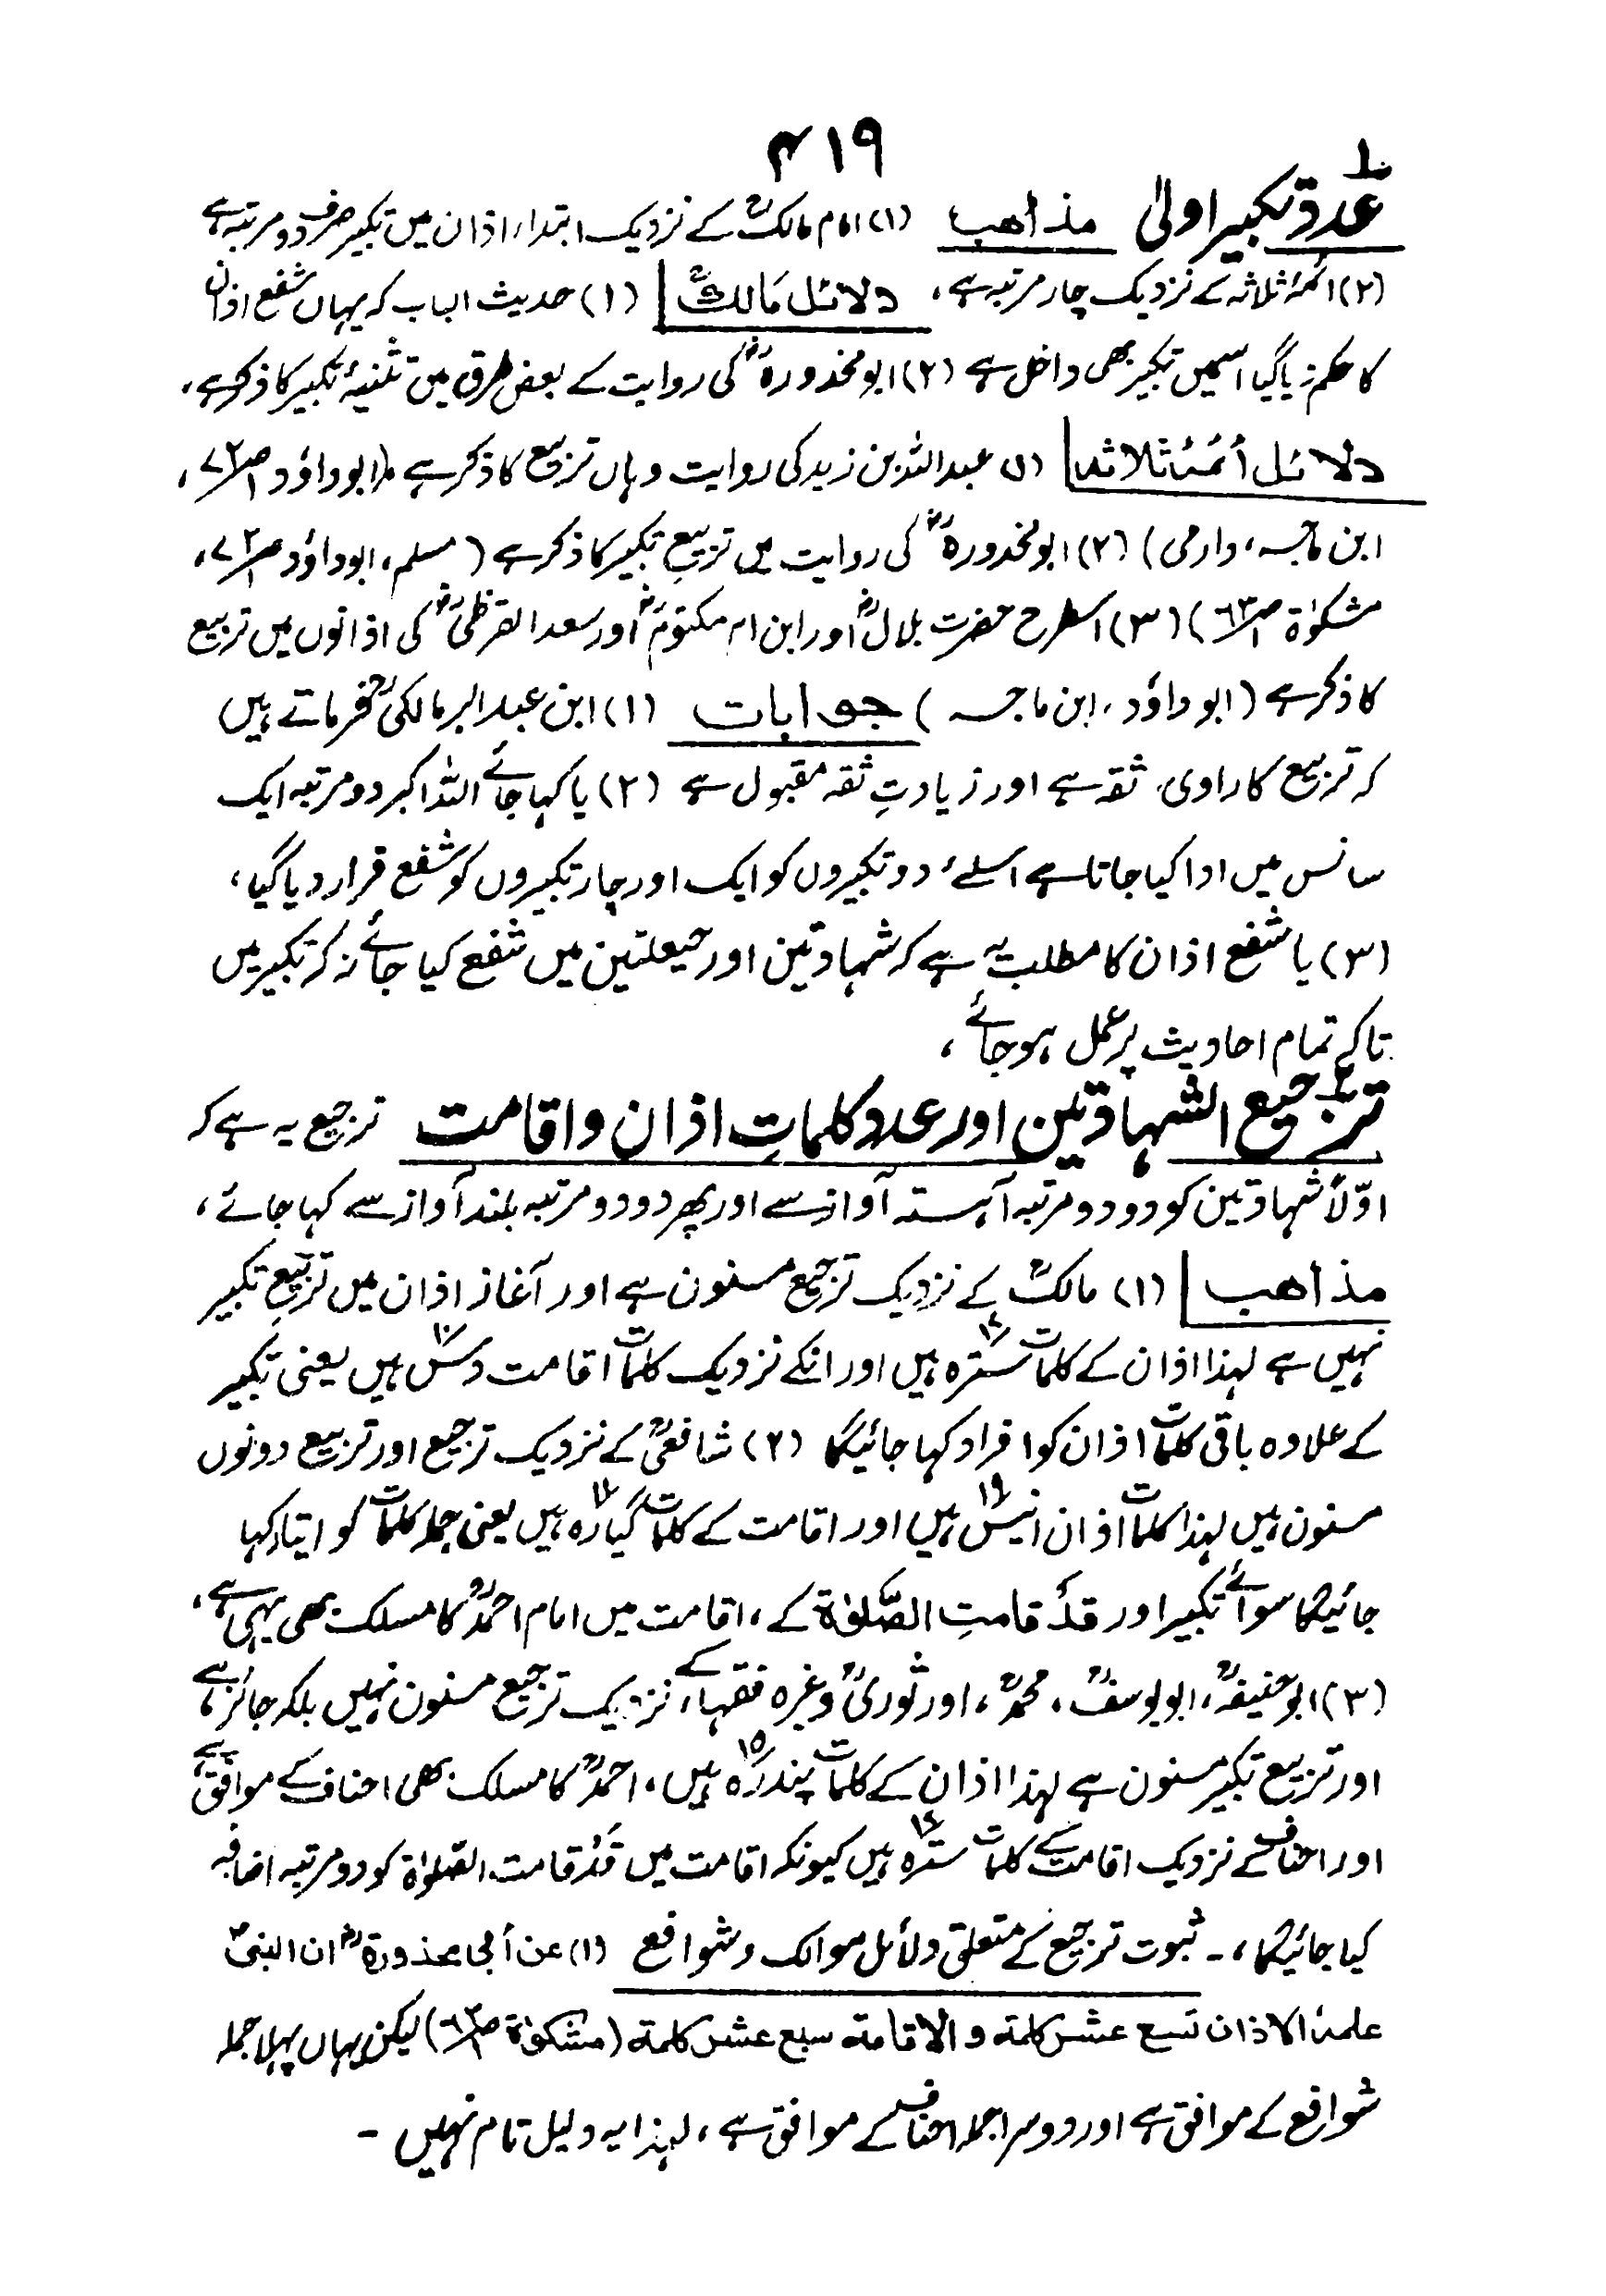 ۴۱۹
عدد تکبیر اولیٰ مذاھب (۱) امام مالکؒ کے نزدیک ابتداء اذان میں تکبیر صرف دو مرتبہ ہے
(۲) ائمۂ ثلاثہ کے نزدیک چار مرتبہ ہے ، دلائل مالکؒ (۱) حدیث الباب کہ یہاں شفع اذان
کا حکم دیا گیا اسمیں تکبیر بھی داخل ہے (۲) ابو محذورہؓ کی روایت کے بعض طرق میں تثنیۂ تکبیر کا ذکر ہے ،
دلائل أئمۂ ثلاثہ (۱) عبداللہ بن زید کی روایت وہاں تربیع کا ذکر ہے (ابوداؤد ص۷۲ ،
ابن ماجہ ، دارمی) (۲) ابو محذورہؓ کی روایت میں تربیعِ تکبیر کا ذکر ہے (مسلم ، ابوداؤد ص۷۲ ،
مشکوٰۃ ص۶۳) (۳) اسطرح حضرت بلالؓ اور ابن ام مکتومؓ اور سعد القرظیؓ کی اذانوں میں تربیع
کا ذکر ہے (ابوداؤد ، ابن ماجہ) جوابات (۱) ابن عبدالبر مالکیؒ فرماتے ہیں
کہ تربیع کا راوی ثقہ ہے اور زیادتِ ثقہ مقبول ہے (۲) یا کہا جائے اللہ اکبر دو مرتبہ ایک
سانس میں ادا کیا جاتا ہے اسلئے دو تکبیروں کو ایک اور چار تکبیروں کو شفع قرار دیا گیا ،
(۳) یا شفع اذان کا مطلب یہ ہے کہ شہادتین اور حیعلتین میں شفع کیا جائے نہ کہ تکبیر میں
تاکہ تمام احادیث پر عمل ہو جائے ،
ترجیع الشہادتین اور عدد کلماتِ اذان و اقامت ترجیع یہ ہے کہ
اوّلاً شہادتین کو دو دو مرتبہ آہستہ آواز سے اور پھر دو دو مرتبہ بلند آواز سے کہا جائے ،
مذاھب (۱) مالکؒ کے نزدیک ترجیع مسنون ہے اور آغاز اذان میں تربیعِ تکبیر
نہیں ہے لہذا اذان کے کلمات سترہ ۱۷ ہیں اور انکے نزدیک کلمات اقامت دس ۱۰ ہیں یعنی تکبیر
کے علاوہ باقی کلمات اذان کو افراد کہا جائیگا (۲) شافعیؒ کے نزدیک ترجیع اور تربیع دونوں
مسنون ہیں لہذا کلمات اذان انیس ۱۹ ہیں اور اقامت کے کلمات گیارہ ۱۱ ہیں یعنی جملہ کلمات کو ایتار کہا
جائیگا سوائے تکبیر اور قدْ قامتِ الصّلوٰۃ کے ، اقامت میں امام احمدؒ کا مسلک بھی یہی ہے ،
(۳) ابو حنیفہؒ ، ابویوسفؒ ، محمدؒ ، اور ثوریؒ وغیرہ فقہاء کے نزدیک ترجیع مسنون نہیں بلکہ جائز ہے
اور تربیع تکبیر مسنون ہے لہذا اذان کے کلمات پندرہ ۱۵ ہیں ، احمدؒ کا مسلک بھی احناف کے موافق ہے
اور احناف کے نزدیک اقامت کے کلمات سترہ ۱۷ ہیں کیونکہ اقامت میں قَدْ قامت الصّلوٰۃ کو دو مرتبہ اضافہ
کیا جائیگا ، ۔ ثبوت ترجیع کے متعلق دلائل موالک و شوافع (۱) عن أبی محذورۃؓ ان النبیؐ
علمہ الاذان تسع عشر کلمۃ و الاقامۃ سبع عشر کلمۃ (مشکوٰۃ ص۶۳) لیکن یہاں پہلا جملہ
شوافع کے موافق ہے اور دوسرا جملہ احناف کے موافق ہے ، لہذا یہ دلیل تام نہیں ۔